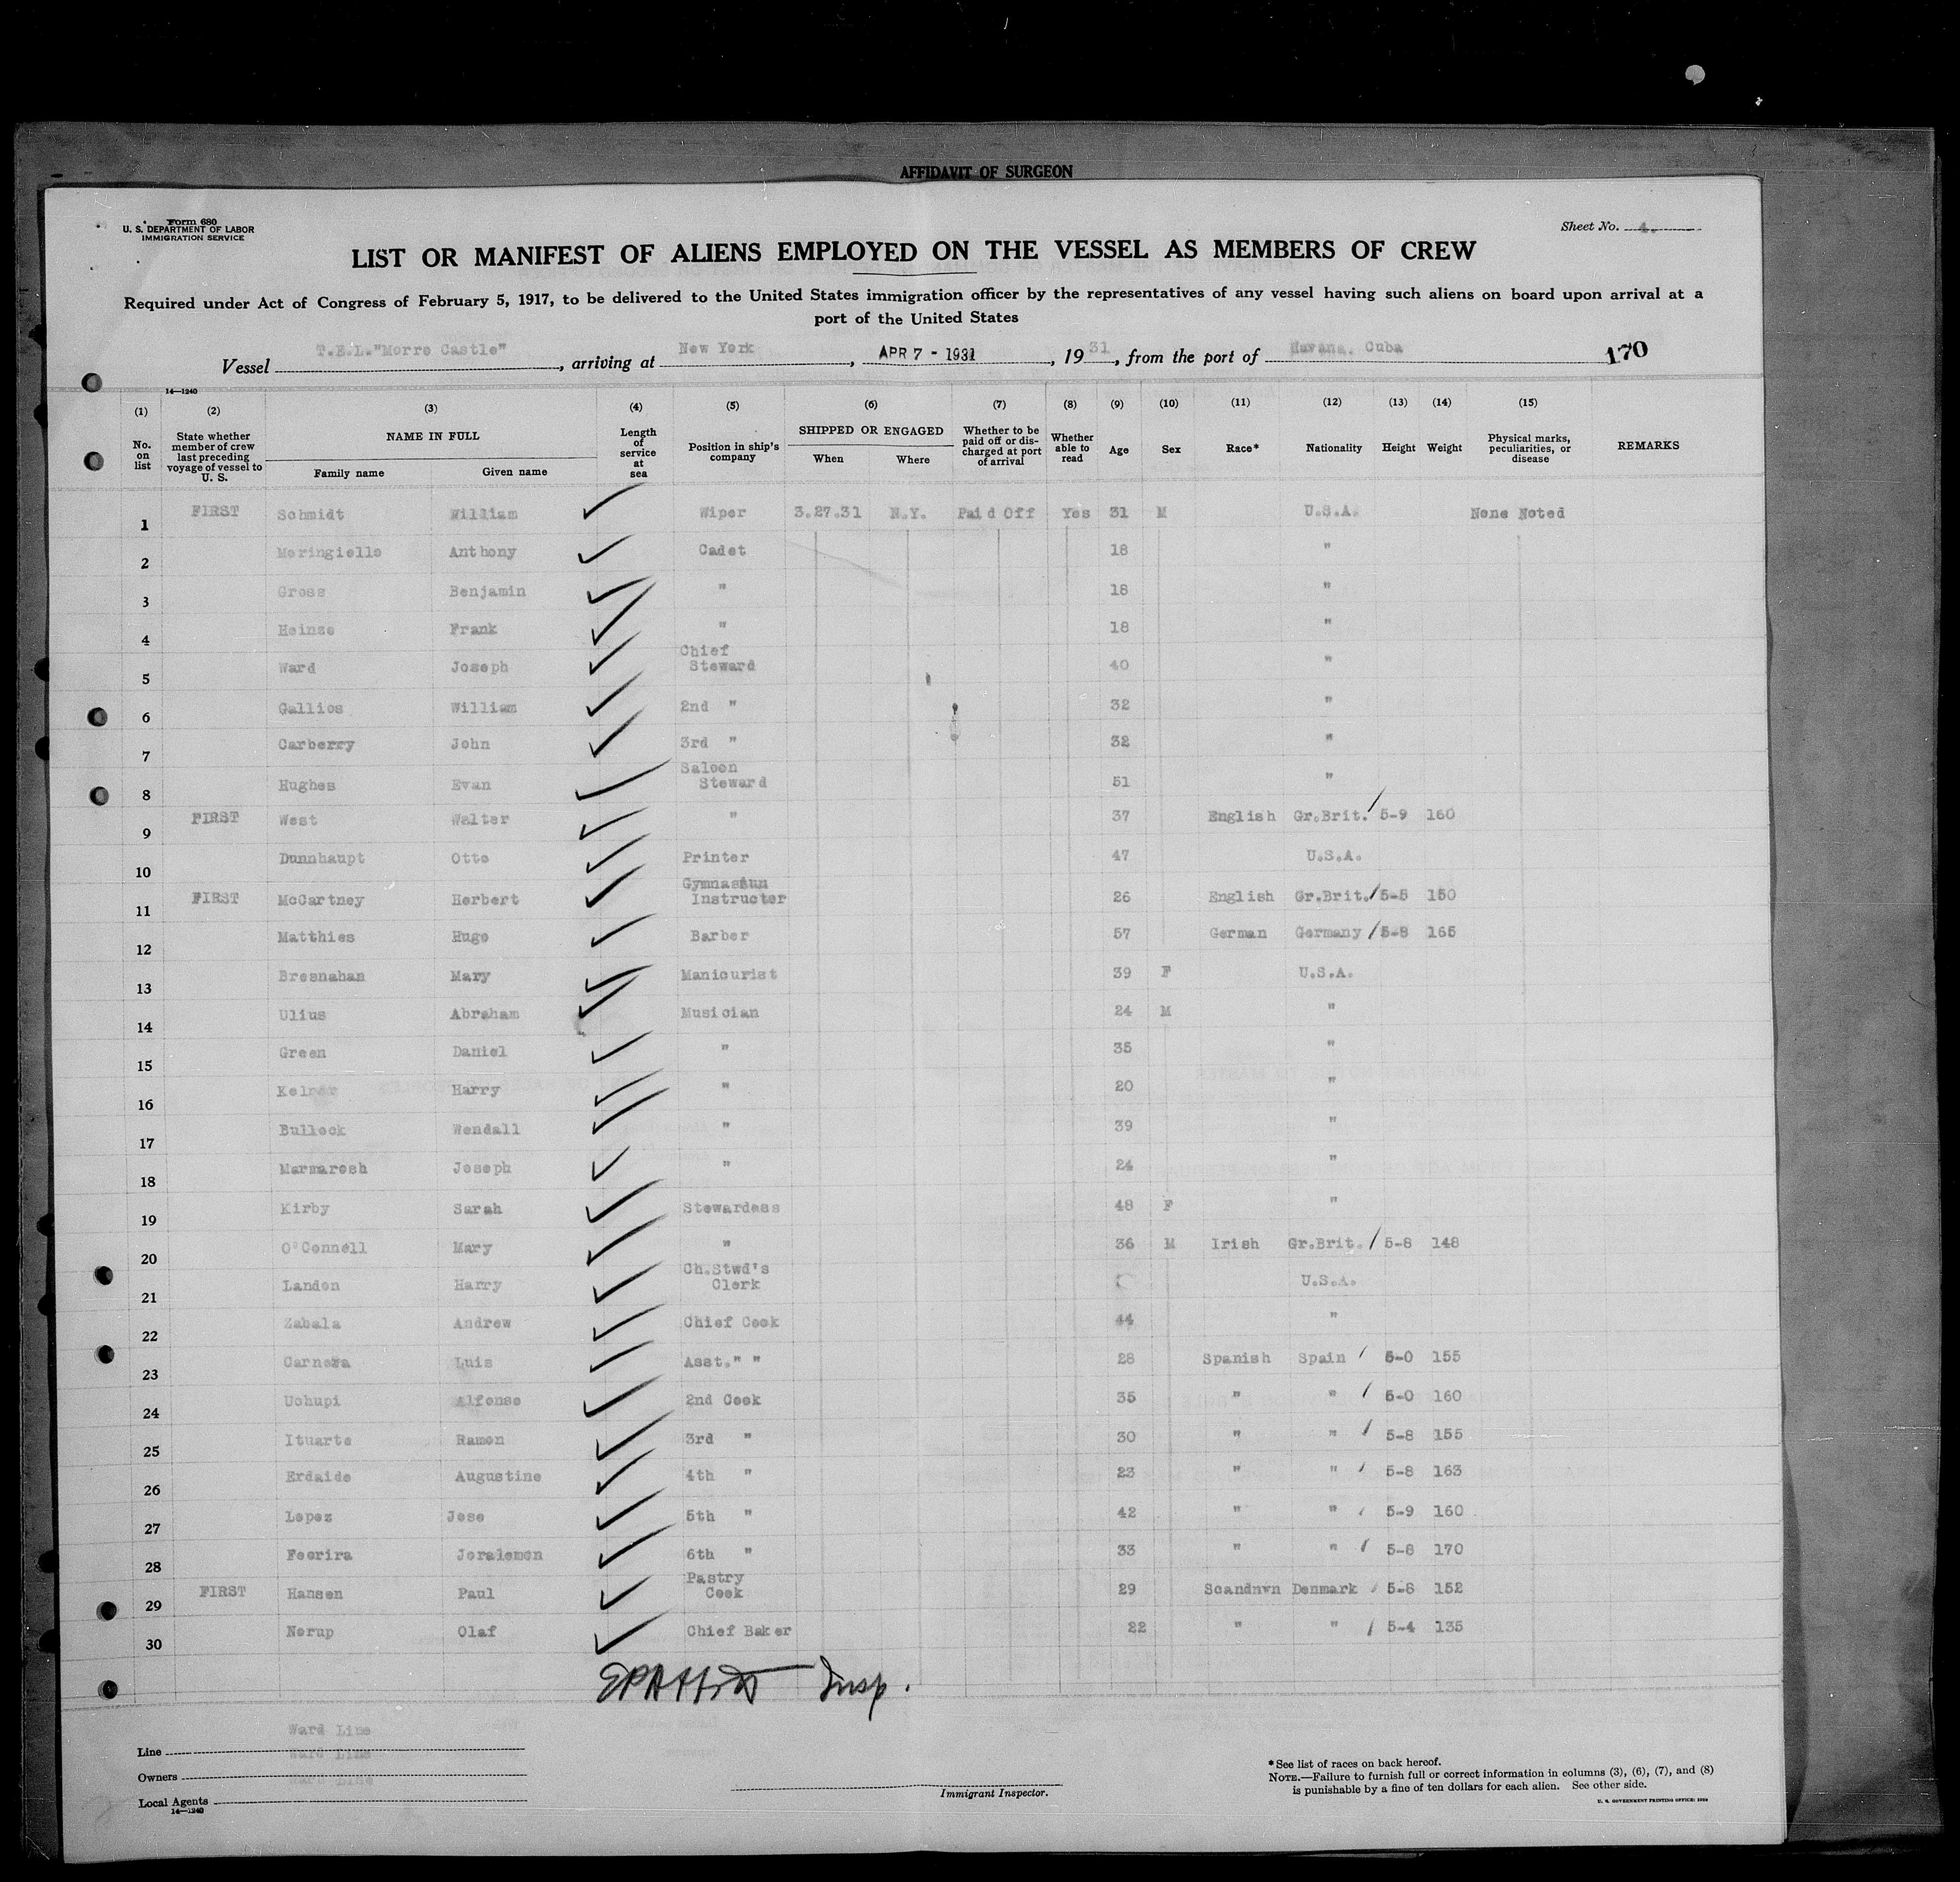 AFFIDAVIT OF SURGEON
Form 680
U. S. DEPARTMENT OF LABOR
IMMIGRATION SERVICE
Sheet No. 4.
LIST OR MANIFEST OF ALIENS EMPLOYED ON THE VESSEL AS MEMBERS OF CREW
Required under Act of Congress of February 5, 1917, to be delivered to the United States immigration officer by the representatives of any vessel having such aliens on board upon arrival at a
port of the United States
Vessel T.E.L."Morro Castle", arriving at New York, APR 7 - 1931, 1931, from the port of Havana, Cuba 170
14—1240
(1) (2) (3) (4) (5) (6) (7) (8) (9) (10) (11) (12) (13) (14) (15)
No. on list State whether member of crew last preceding voyage of vessel to U. S. NAME IN FULL Family name Given name Length of service at sea Position in ship's company SHIPPED OR ENGAGED When Where Whether to be paid off or discharged at port of arrival Whether able to read Age Sex Race* Nationality Height Weight Physical marks, peculiarities, or disease REMARKS
1 FIRST Schmidt William Wiper 3.27.31 N.Y. Paid Off Yes 31 M U.S.A. None Noted
2 Moringiello Anthony Cadet 18 "
3 Gross Benjamin " 18 "
4 Heinze Frank " 18 "
5 Ward Joseph Chief Steward 40 "
6 Gallios William 2nd " 32 "
7 Carberry John 3rd " 32 "
8 Hughes Evan Saloon Steward 51 "
9 FIRST West Walter " 37 English Gr.Brit. 5-9 160
10 Dunnhaupt Otto Printer 47 U.S.A.
11 FIRST McCartney Herbert Gymnasium Instructor 26 English Gr.Brit. 5-5 150
12 Matthies Hugo Barber 57 German Germany 5-8 165
13 Bresnahan Mary Manicurist 39 F U.S.A.
14 Ulius Abraham Musician 24 M "
15 Green Daniel " 35 "
16 Harry " 20 "
17 Bullock Wendall " 39 "
18 Marmarosh Joseph " 24 "
19 Kirby Sarah Stewardess 48 F "
20 O'Connell Mary " 36 M Irish Gr.Brit. 5-8 148
21 Landon Harry Ch.Stwd's Clerk U.S.A.
22 Zabala Andrew Chief Cook 44 "
23 Luis Asst." " 28 Spanish Spain 5-0 155
24 Uohupi Alfonso 2nd Cook 35 " " 5-0 160
25 Ituarte Ramon 3rd " 30 " " 5-8 155
26 Erdaide Augustine 4th " 23 " " 5-8 163
27 Lopez Jose 5th " 42 " " 5-9 160
28 Feorira Joralemon 6th " 33 " " 5-8 170
29 FIRST Hansen Paul Pastry Cook 29 Scandnvn Denmark 5-8 152
30 Norup Olaf Chief Baker 22 " " 5-4 135
Insp.
Ward Line
Line Ward Line
Owners Ward Line
Local Agents
14—1240
Immigrant Inspector.
*See list of races on back hereof.
NOTE.—Failure to furnish full or correct information in columns (3), (6), (7), and (8)
is punishable by a fine of ten dollars for each alien. See other side.